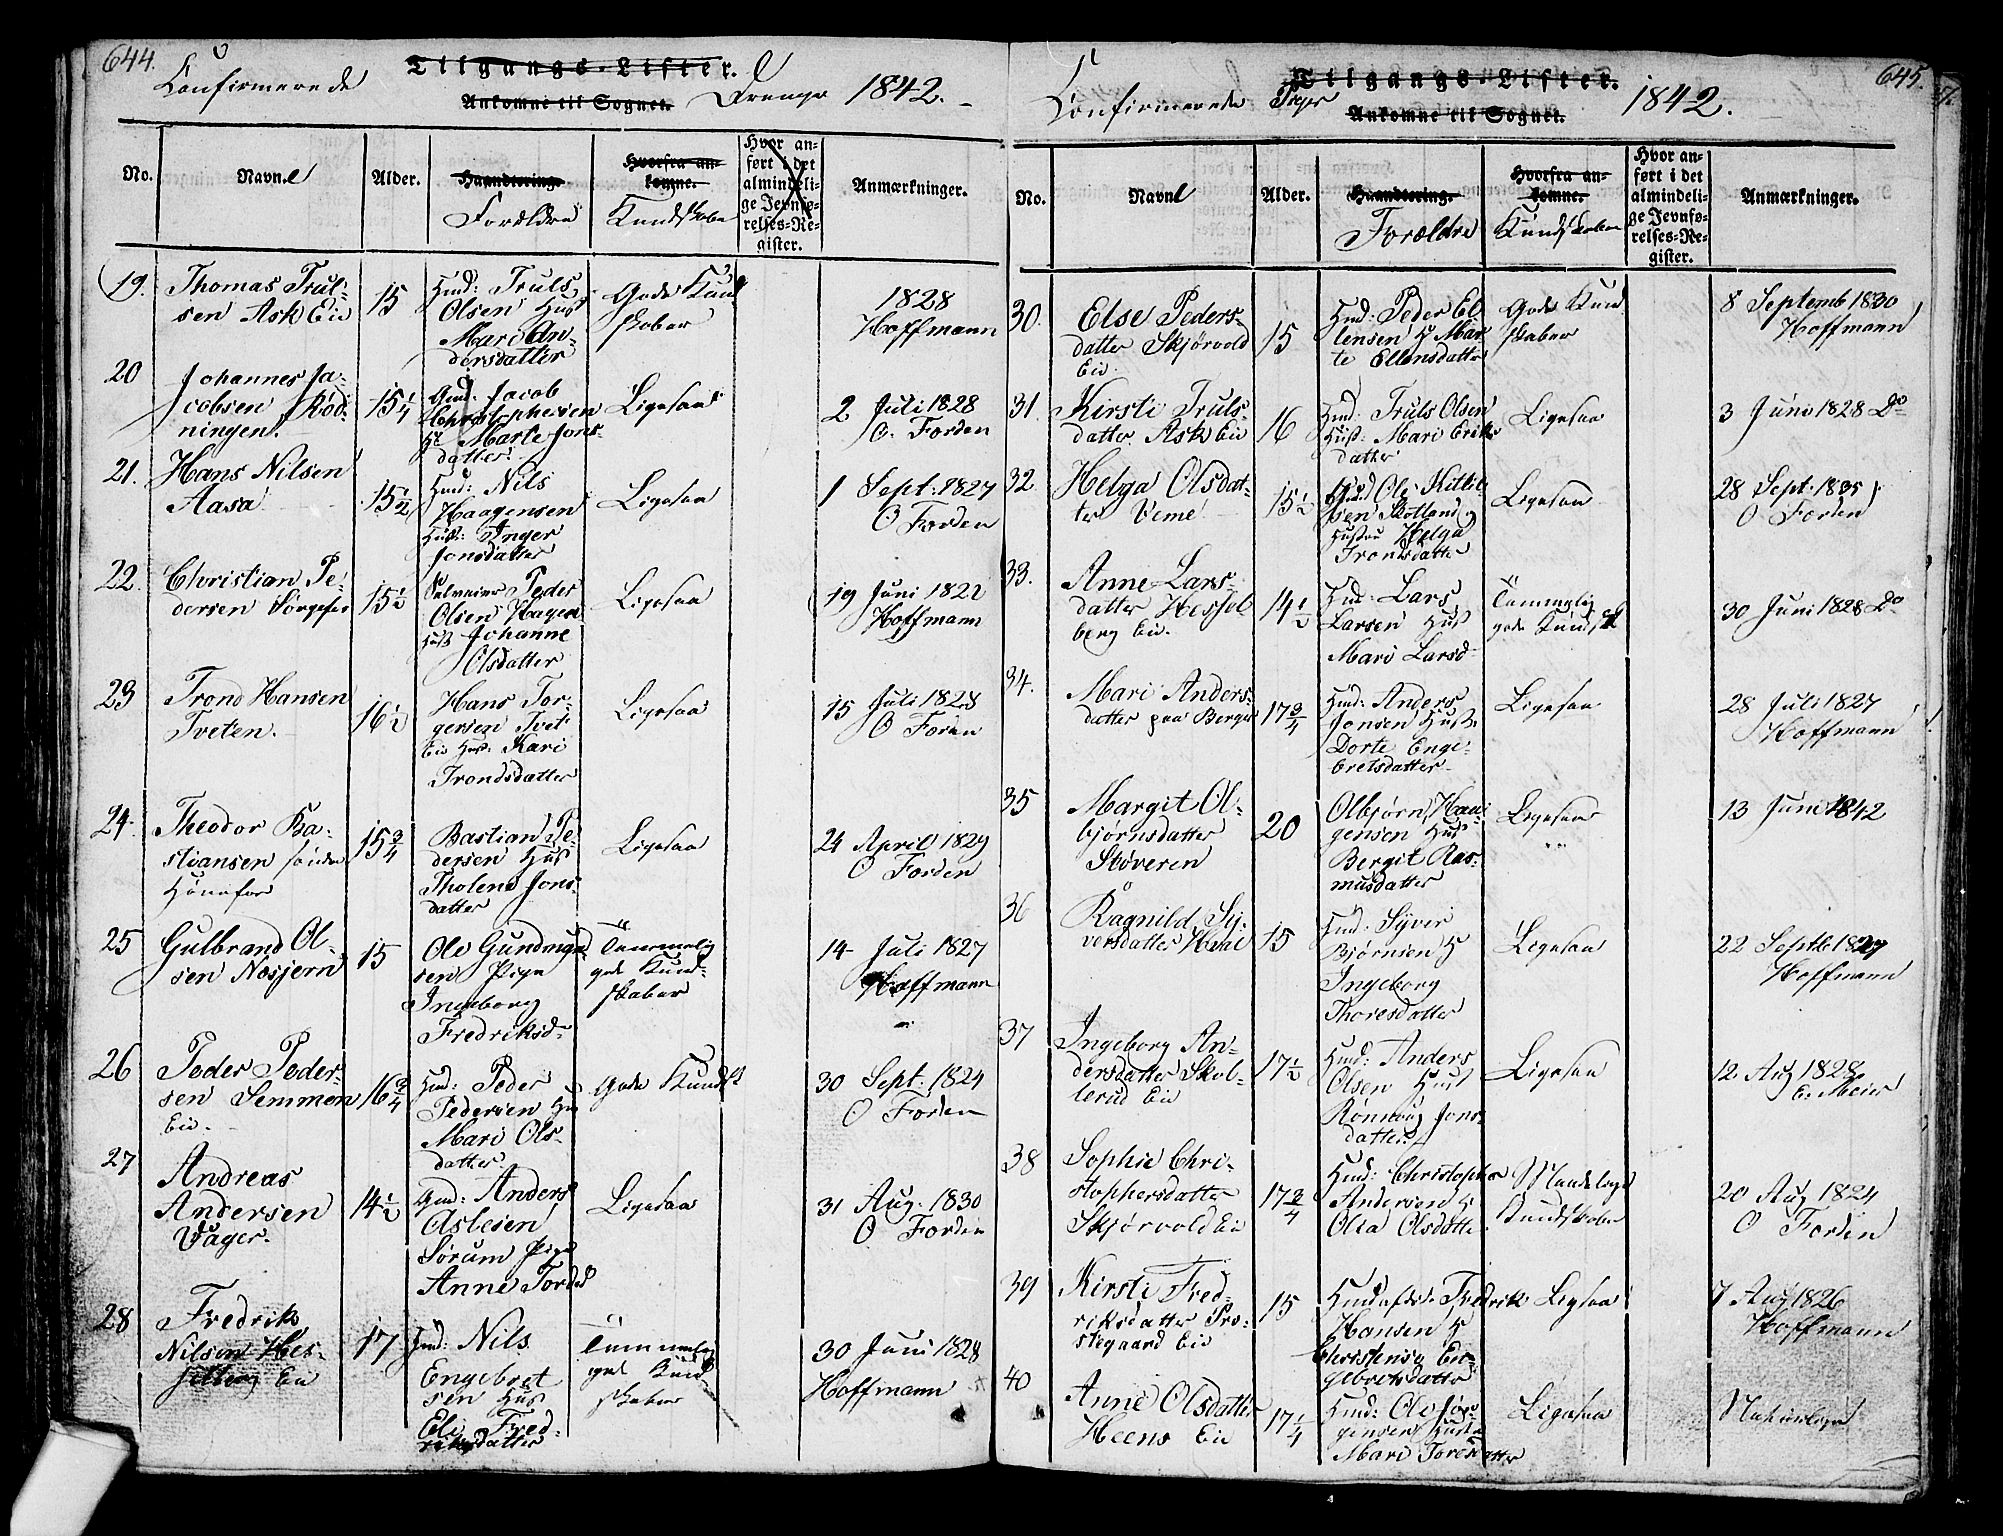 644.
Tilgangs-Lister.
Confirmerede
Ankomne til Sognet. Drenge 1842.
No. Navne Alder. Haandtering. Forældre Hvorfra ankomne. Kundskaber Hvor anført i det almindelige Jevnførelses-Register. Anmærkninger.
19. Thomas Trul-
sen Ask Eie
15
Huusmd: Truls
Olsen Hust
Mari An-
dersdatter
Gode Kund
skaber
1828
Hoffmann
20
Johannes Ja-
cobsen Rød-
ningen.
15 1/4
Gmd: Jacob
Christophersen
H. Marte Jons-
datter.
Ligesaa
2 Juli 1828
O. Forden
21.
Hans Nilsen
Aasa
15 1/2
Hmd: Nils
Haagensen
Hust: Inger
Jonsdatter
Ligesaa
1 Sept: 1827
O Forden
22.
Christian Pe-
dersen
15 1/2
Peder
Olsen Hagen
Hust Johanne
Olsdatter
Ligesaa
19 Juni 1822
Hoffmann
23
Trond Hansen
Tveten.
16 1/2
Hans Tor-
gersen Tvet
Eie Hust: Kari
Trondsdatter
Ligesaa
15 Juli 1828
O Forden
24
Theodor Ba-
stiansen søndre
Hønefos
15 3/4
Bastian Pe-
dersen Hust
Tholene Jons-
datter
Ligesaa
24 April 1829
O Forden
25
Gulbrand Ol-
sen Næsjern
15
Ole Gundmund
sen Pige
Ingeborg
Fredriksd
Temmelig
gode Kund-
skaber
14 Juli 1827
Hoffmann
26
Peder Peder-
sen Semmen
Eie.
16 3/4
Hmd: Peder
Pedersen Hu
Mari Ols-
datter.
Gode Kundsk
30 Sept: 1824
O Forden
27
Andreas
Andersen
Vager.
14 1/2
Gmd: Anders
Aslesen
Sørum Pige
Anne Tordsd
Ligesaa
31 Aug. 1830
O Forden
28
Fredrik
Nilsen Hes-
selberg Eie
17
Hmd: Nils
Engebret
sen Hust
Eli Fred-
riksdatter
Temmelig
gode Kund
skaber
30 Juni 1828
Hoffmann
645.
Tilgangs-Lister.
Confirmerede Piger
Ankomne til Sognet. 1842.
No. Navne Alder. Haandtering. Forældre Hvorfra ankomne. Kundskaber Hvor anført i det almindelige Jevnførelses-Register. Anmærkninger.
30.
Else Peders-
datter Skjørvold
Eie.
15
Hmd: Peder El
lensen H Mar
te Ellensdatter
Gode Kund
skaber
8 Septemb 1830
Hoffmann
31.
Kirsti Truls-
datter Ask Eie
16
Hmd: Truls Olsen
Hust: Mari Eriks
datter
Ligesaa
3 Juni 1828 Do
32
Helga Olsdat-
ter Veme
15 1/2
Ole Kittil-
sen Skotland
Hustru Helga
Trondsdatter
Ligesaa
28 Sept: 1835
O Forden
33.
Anne Lars-
datter Hessel
berg Eie.
14 1/2
Hmd: Lars
Larsen Hust
Mari Larsd
Temmelig
gode Kundsk
30 Juni 1828 Do
34.
Mari Anders-
datter paa Berger
17 3/4
Hmd: Anders
Jonsen Hust:
Dorte Enge-
bretsdatter
Ligesaa
28 Juli 1827
Hoffmann
35
Margit Ol-
bjørnsdatter
Støveren
20
Olbjørn Hau-
gensen Hust
Bergit Ras-
musdatter
Ligesaa
13 Juni 1842
36
Ragnild Sy-
versdatter
15
Hmd: Syver
Bjørnsen H
Ingeborg
Thoresdatter
Ligesaa
22 Septb 1827
Hoffmann
37
Ingeborg An-
dersdatter Skol-
lerud Eie
17 1/2
Hmd: Anders
Olsen Hust
Rønnoug Jons-
datter
Ligesaa
12 Aug 1828
E. Meier
38
Sophie Chri-
stophersdatter
Skjørvold Eie
17 3/4
Hmd: Christopher
Andersen H
Olia Olsdatter
Maadelige
Kundskaber
20 Aug 1824
O Forden
39
Kirsti Fred-
riksdatter Præ-
stegaard Eie
15
Fredrik
Hansen H
Christense En-
gebretsdatter
Ligesaa
7 Aug 1826
Hoffmann
40
Anne Olsdatter
Heens Eie
17 1/4
Hmd: Ole Jør-
gensen Hustr
Mari Toresdatter
Ligesaa
Naturlige